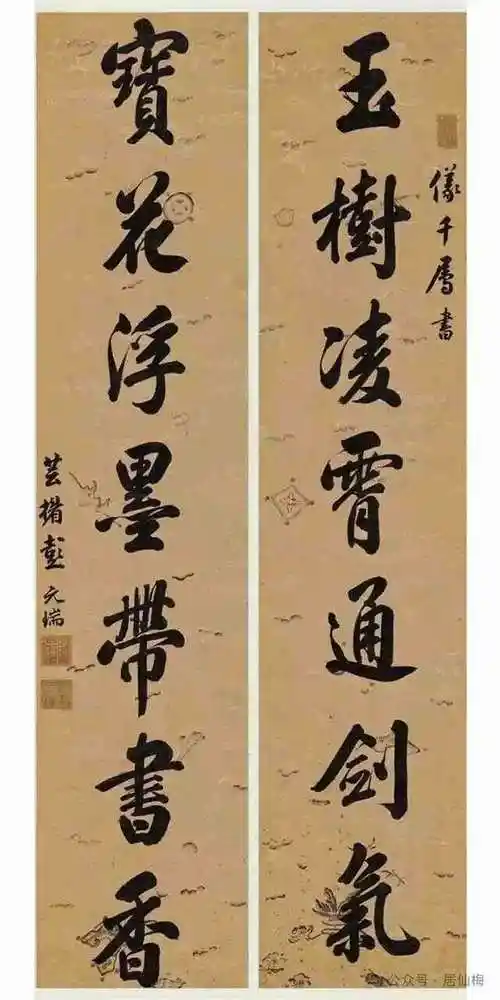 玉樹凌霄通劍氣
儀千屬書
寶花浮墨帶書香
芸楣彭元瑞
公众号·居仙梅